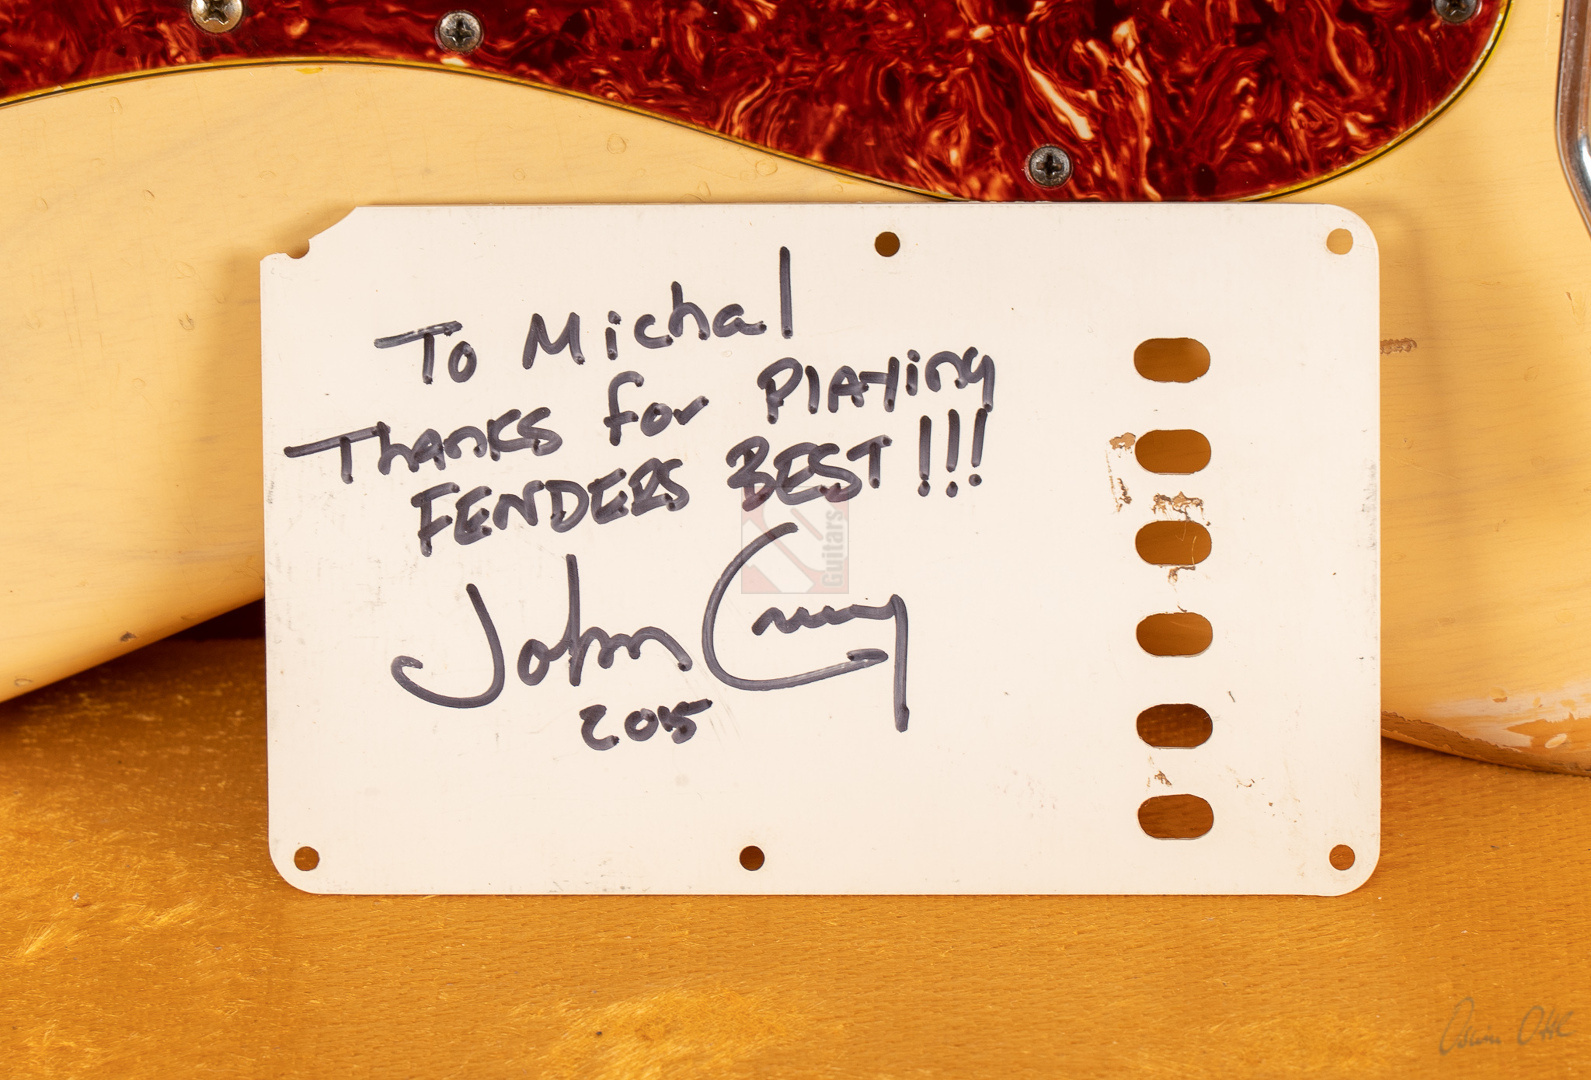 To Michal
THANKS for PLAYing
FENDERS BEST!!!
John Cruz
2015
Guitars